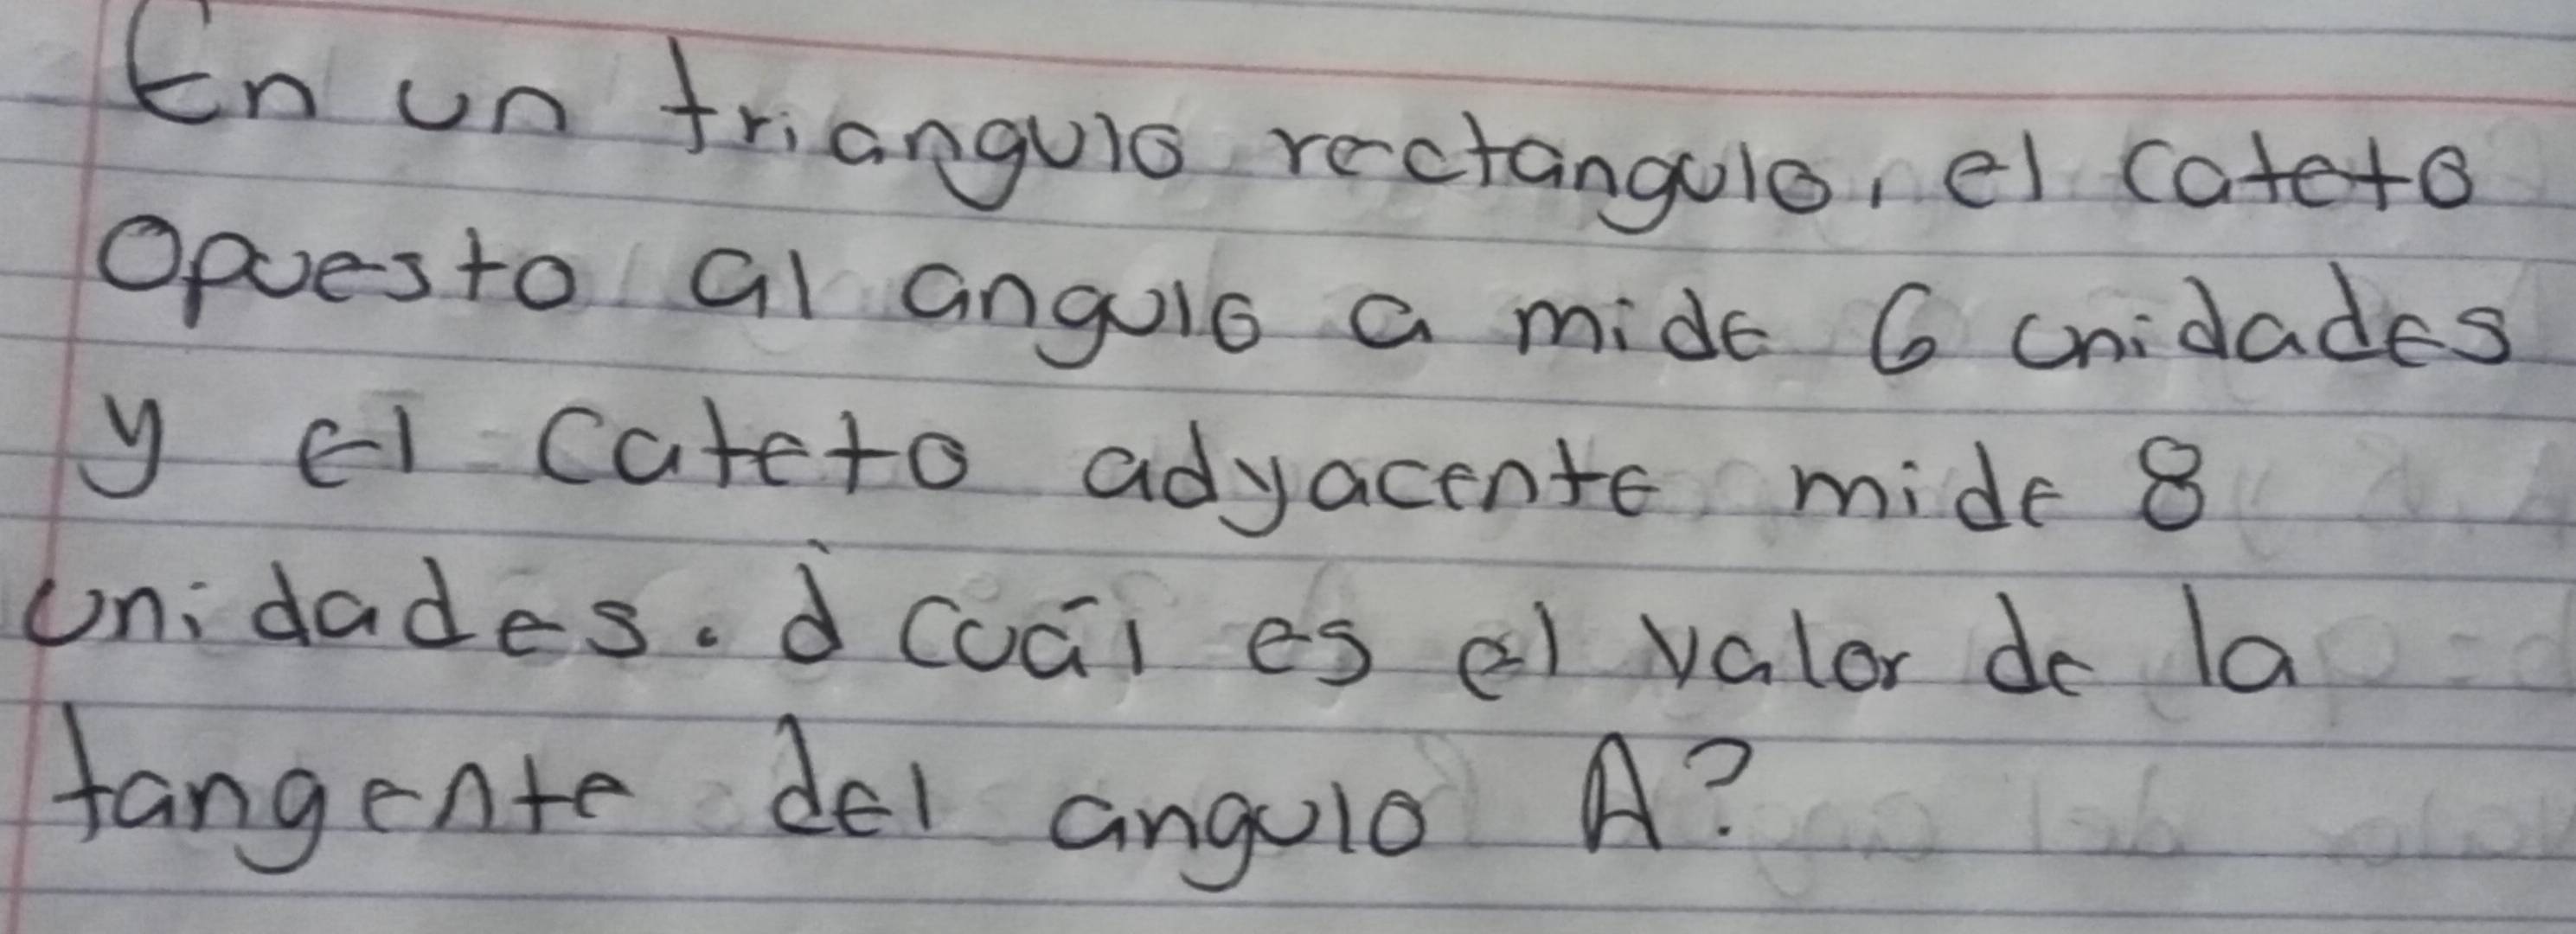 En un triangulo rectangulo, el cateto
Opuesto al angulo a mide 6 unidades
y el cateto adyacente mide 8
unidades. ¿ Cuál es el valor de la
tangente del angulo A?